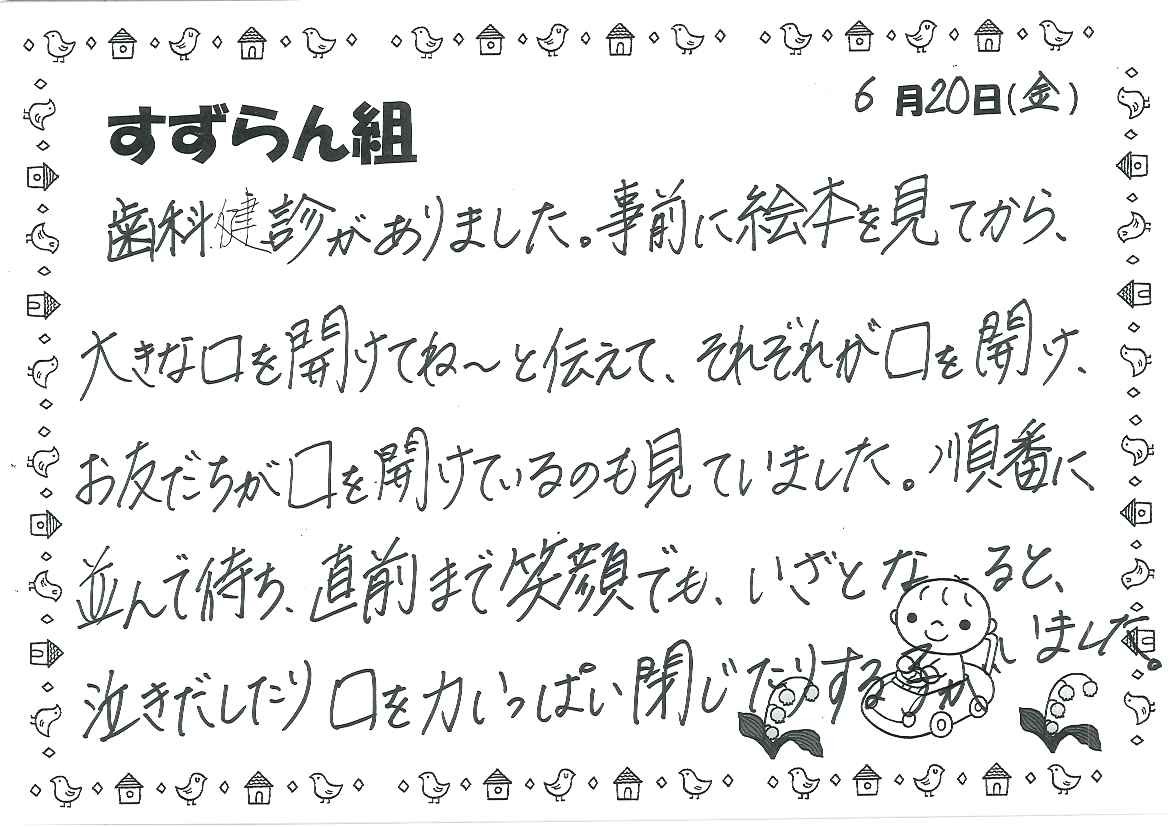 6月20日(金)
すずらん組
歯科健診がありました。事前に絵本を見てから、
大きな口を開けてね〜と伝えて、それぞれが口を開け、
お友だちが口を開けているのも見ていました。順番に
並んで待ち、直前まで笑顔でも、いざとなると、
泣きだしたり口を力いっぱい閉じたりする子がいました。